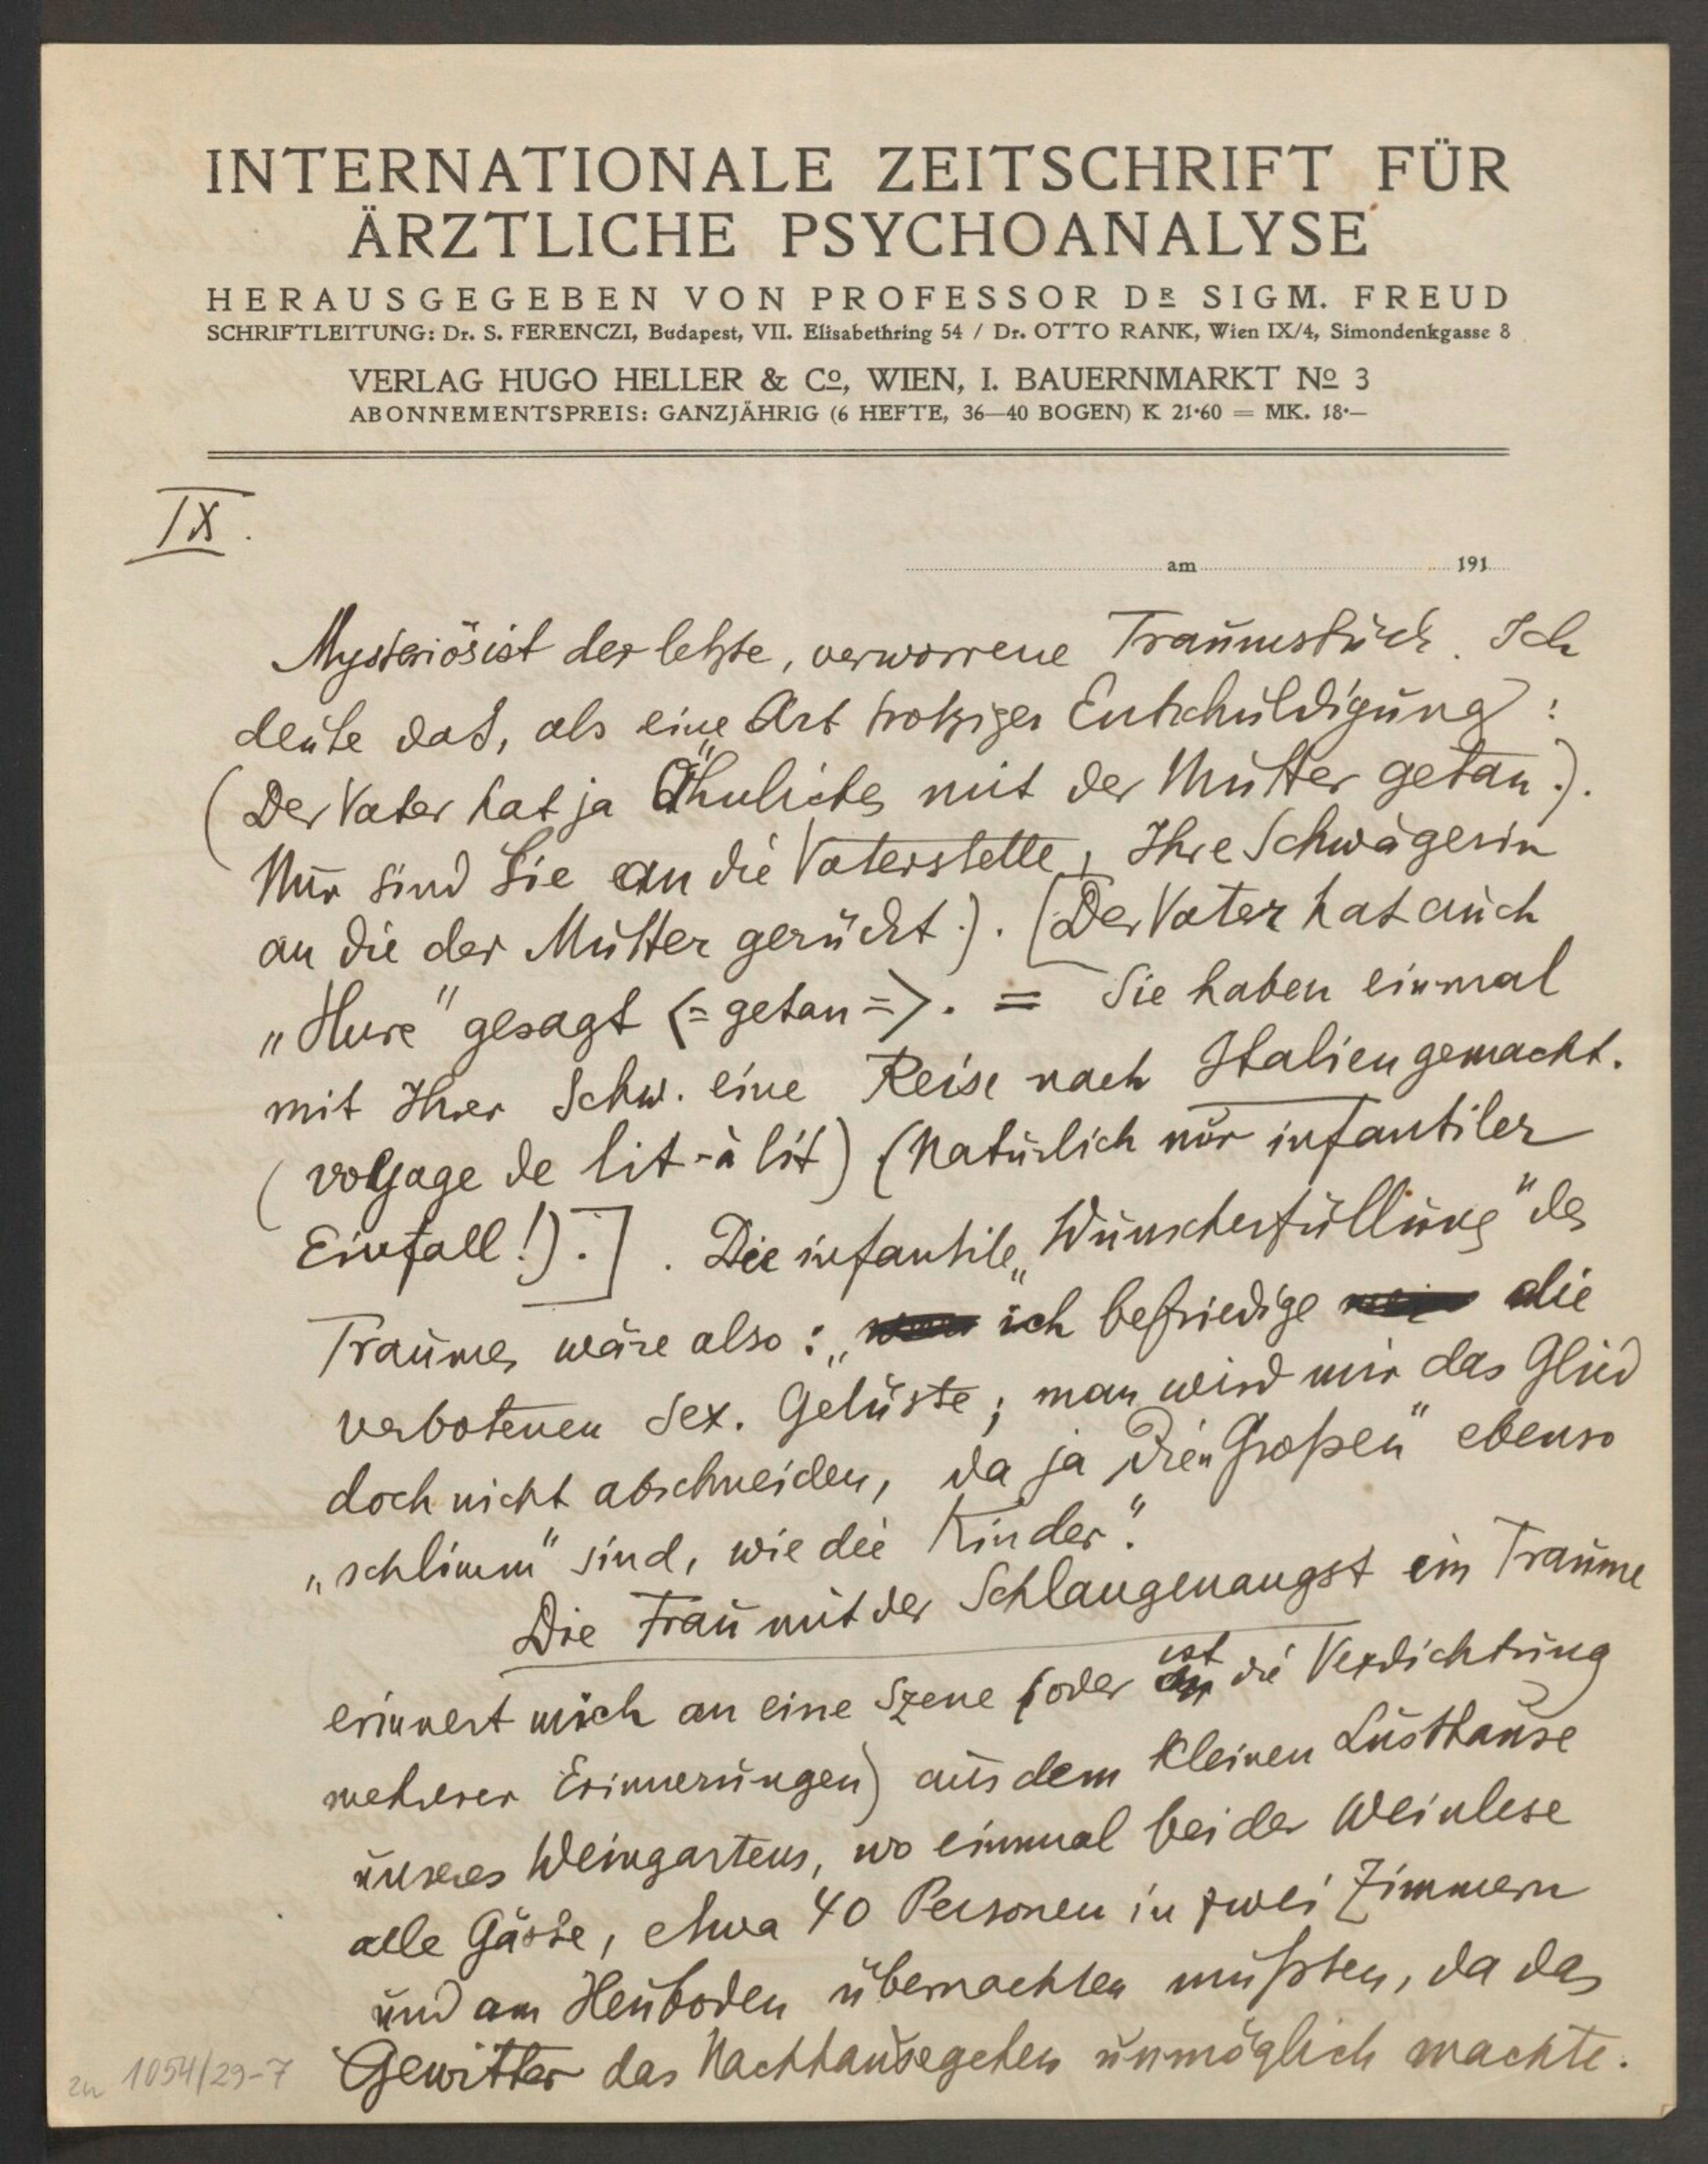 INTERNATIONALE ZEITSCHRIFT FÜR
ÄRZTLICHE PSYCHOANALYSE
HERAUSGEGEBEN VON PROFESSOR DR SIGM. FREUD
SCHRIFTLEITUNG: Dr. S. FERENCZI, Budapest, VII. Elisabethring 54 / Dr. OTTO RANK, Wien IX/4, Simondenkgasse 8
VERLAG HUGO HELLER & Co, WIEN, I. BAUERNMARKT No 3
ABONNEMENTSPREIS: GANZJÄHRIG (6 HEFTE, 36—40 BOGEN) K 21·60 = MK. 18·—
IX.
am 191
Mysteriös ist der letzte, verworrene Traumstück. Ich
deute das, als eine Art trotziger Entschuldigung:
(Der Vater hat ja Ähnliches mit der Mutter getan.).
Nur sind Sie an die Vaterstelle, Ihre Schwägerin
an die der Mutter gerückt.). [Der Vater hat auch
„Hure" gesagt (= getan =). = Sie haben einmal
mit Ihrer Schw. eine Reise nach Italien gemacht.
(voyage de lit-à lit) (Natürlich nur infantiler
Einfall!).]. Die infantile „Wunscherfüllung" des
Traumes wäre also: „ich befriedige die
verbotenen sex. Gelüste; man wird mir das Glied
doch nicht abschneiden, da ja die „Großen" ebenso
„schlimm" sind, wie die Kinder".
Die Frau mit der Schlangenangst im Traume
erinnert mich an eine Szene (oder ist die Verdichtung
mehrerer Erinnerungen) aus dem kleinen Lusthause
unseres Weingartens, wo einmal bei der Weinlese
alle Gäste, etwa 40 Personen in zwei Zimmern
und am Heuboden übernachten mußten, da das
Gewitter das Nachhausegehen unmöglich machte.
zu 1054/29-7